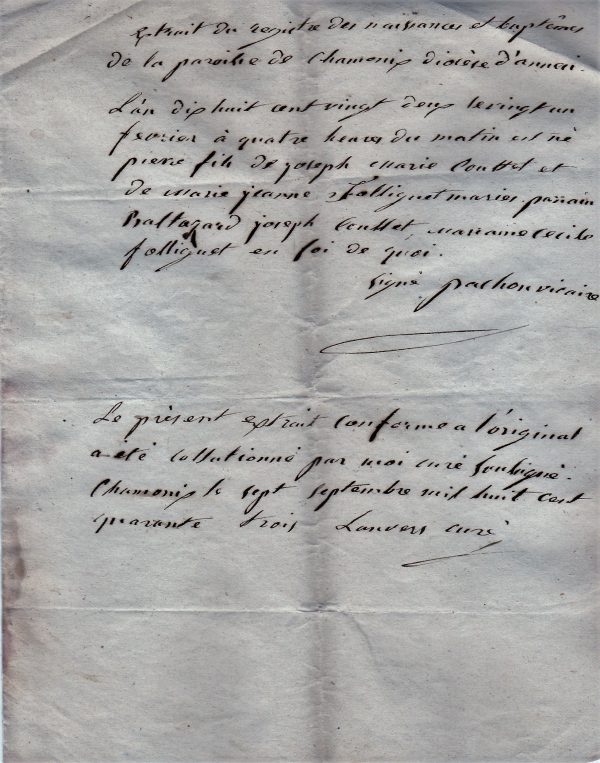 Extrait du registre des naissances et baptêmes
de la paroisse de Chamonix diocèse d'anneci.
L'an dix huit cent vingt deux le vingt un
fevrier à quatre heures du matin est nè
pierre fils de joseph Marie Couttet et
de Marie jeanne folliguet mariés. parrain
Baltazard joseph Couttet, Marraine Cecile
folliguet en foi de quoi.
signè pachon vicaire
Le present extrait conforme a l'original
a été collationné par moi curé soussigné.
Chamonix le sept septembre mil huit cent
quarante trois Lanvers curé